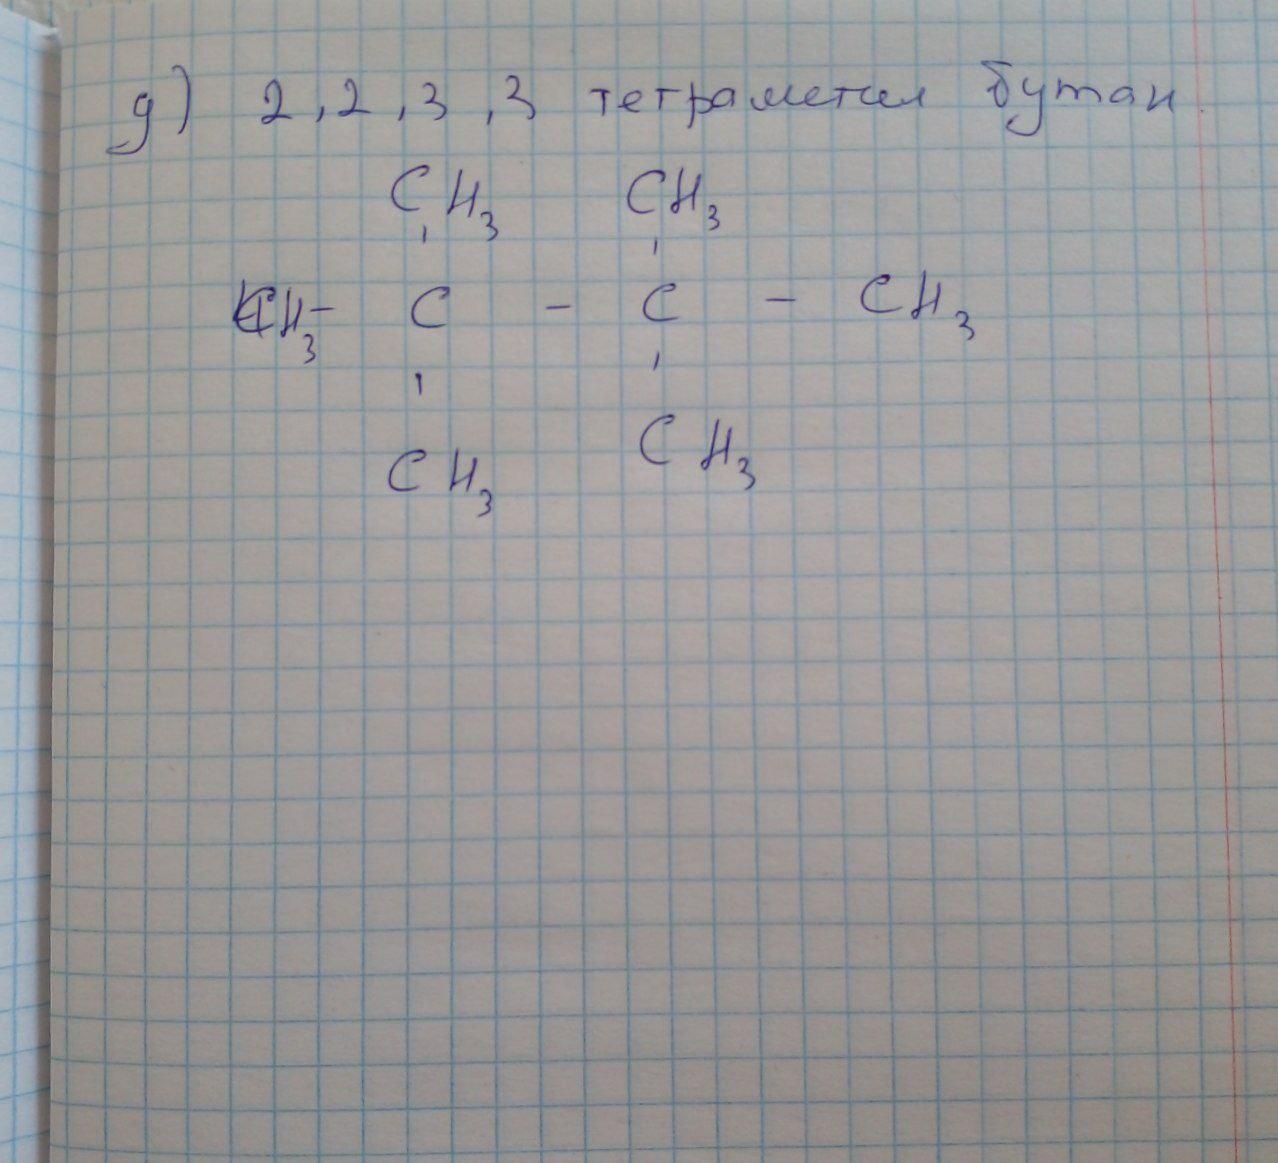 д) 2,2,3,3 тетраметил бутан.
CH3 CH3
CH3- C - C - CH3
CH3 CH3